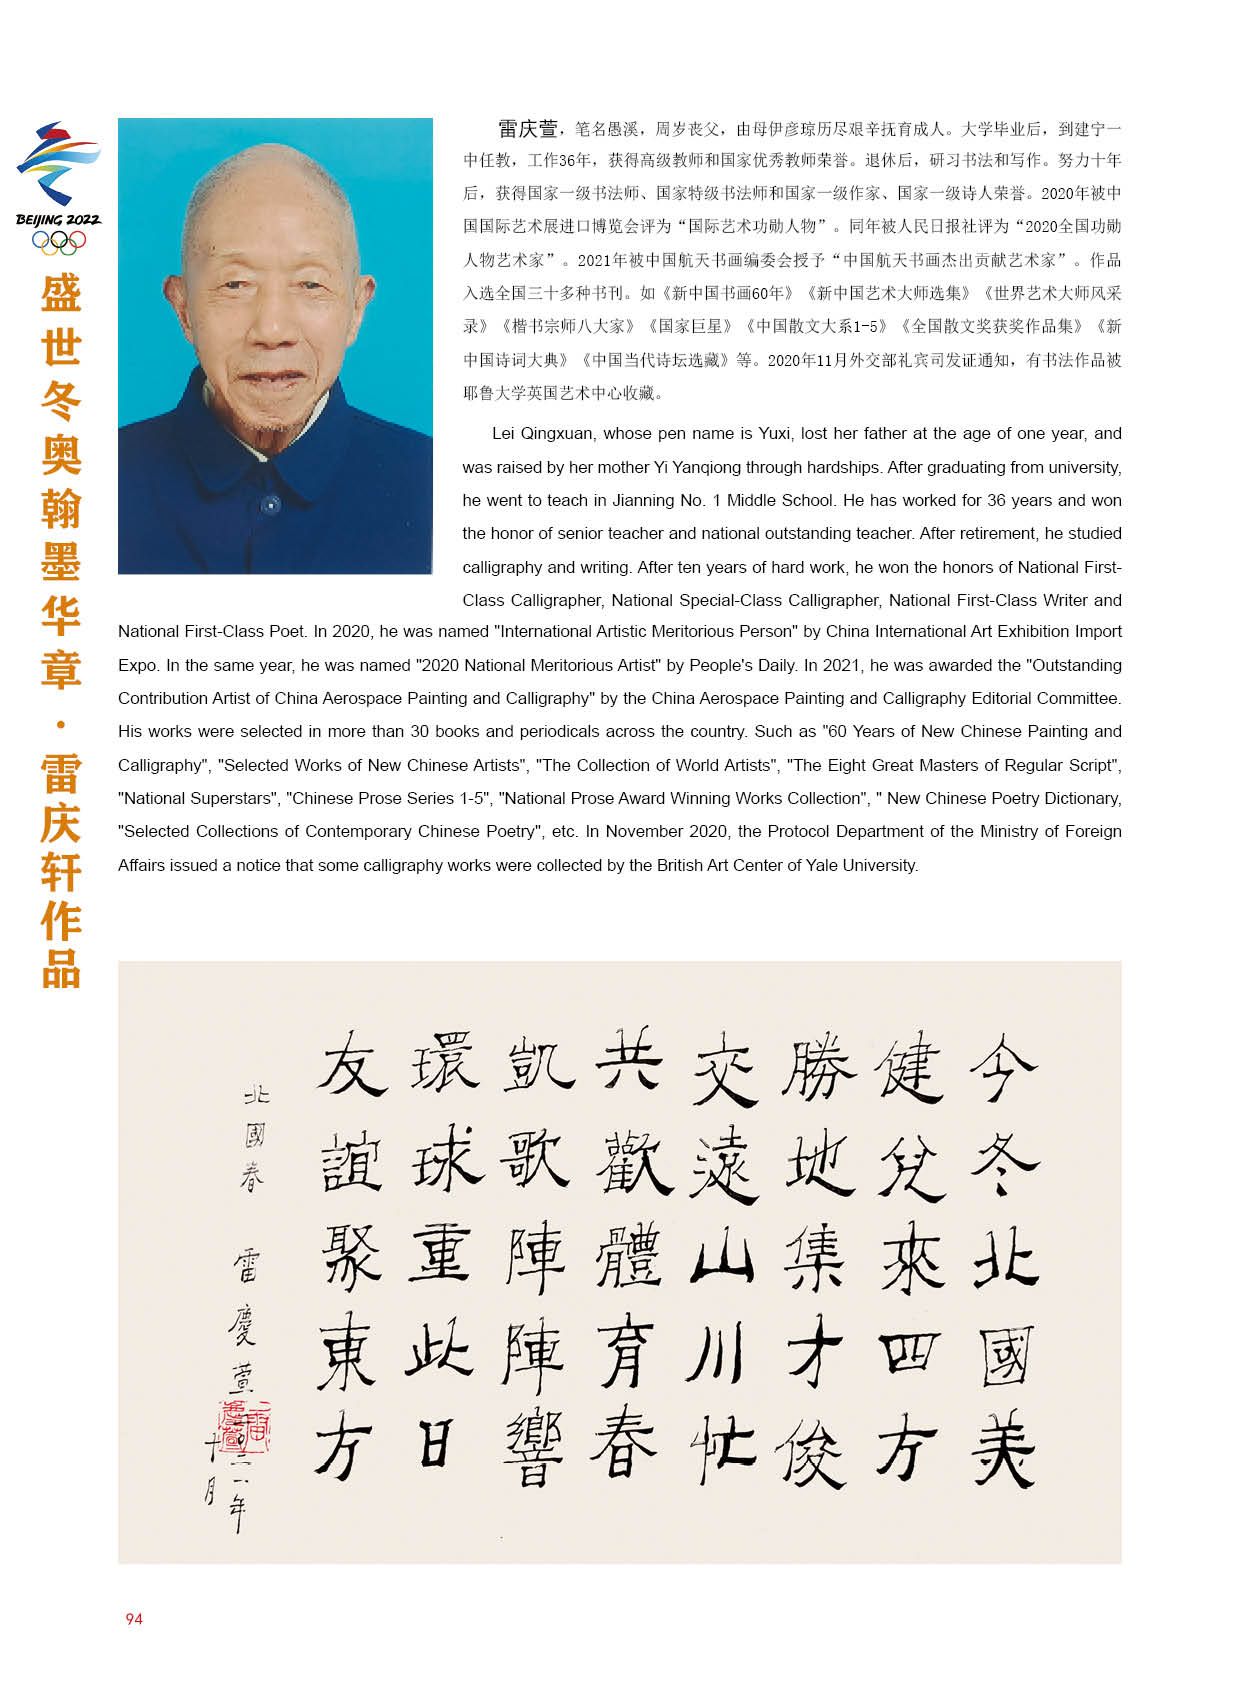 BEIJING 2022
盛世冬奥翰墨华章·雷庆轩作品
雷庆萱，笔名愚溪，周岁丧父，由母伊彦琼历尽艰辛抚育成人。大学毕业后，到建宁一
中任教，工作36年，获得高级教师和国家优秀教师荣誉。退休后，研习书法和写作。努力十年
后，获得国家一级书法师、国家特级书法师和国家一级作家、国家一级诗人荣誉。2020年被中
国国际艺术展进口博览会评为“国际艺术功勋人物”。同年被人民日报社评为“2020全国功勋
人物艺术家”。2021年被中国航天书画编委会授予“中国航天书画杰出贡献艺术家”。作品
入选全国三十多种书刊。如《新中国书画60年》《新中国艺术大师选集》《世界艺术大师风采
录》《楷书宗师八大家》《国家巨星》《中国散文大系1-5》《全国散文奖获奖作品集》《新
中国诗词大典》《中国当代诗坛选藏》等。2020年11月外交部礼宾司发证通知，有书法作品被
耶鲁大学英国艺术中心收藏。
Lei Qingxuan, whose pen name is Yuxi, lost her father at the age of one year, and
was raised by her mother Yi Yanqiong through hardships. After graduating from university,
he went to teach in Jianning No. 1 Middle School. He has worked for 36 years and won
the honor of senior teacher and national outstanding teacher. After retirement, he studied
calligraphy and writing. After ten years of hard work, he won the honors of National First-
Class Calligrapher, National Special-Class Calligrapher, National First-Class Writer and
National First-Class Poet. In 2020, he was named "International Artistic Meritorious Person" by China International Art Exhibition Import
Expo. In the same year, he was named "2020 National Meritorious Artist" by People's Daily. In 2021, he was awarded the "Outstanding
Contribution Artist of China Aerospace Painting and Calligraphy" by the China Aerospace Painting and Calligraphy Editorial Committee.
His works were selected in more than 30 books and periodicals across the country. Such as "60 Years of New Chinese Painting and
Calligraphy", "Selected Works of New Chinese Artists", "The Collection of World Artists", "The Eight Great Masters of Regular Script",
"National Superstars", "Chinese Prose Series 1-5", "National Prose Award Winning Works Collection", " New Chinese Poetry Dictionary,
"Selected Collections of Contemporary Chinese Poetry", etc. In November 2020, the Protocol Department of the Ministry of Foreign
Affairs issued a notice that some calligraphy works were collected by the British Art Center of Yale University.
今冬北國美
健兒來四方
勝地集才俊
交遠山川忙
共歡體育春
凱歌陣陣響
環球重此日
友誼聚東方
北國春 雷慶萱 二〇二一年
十月
94